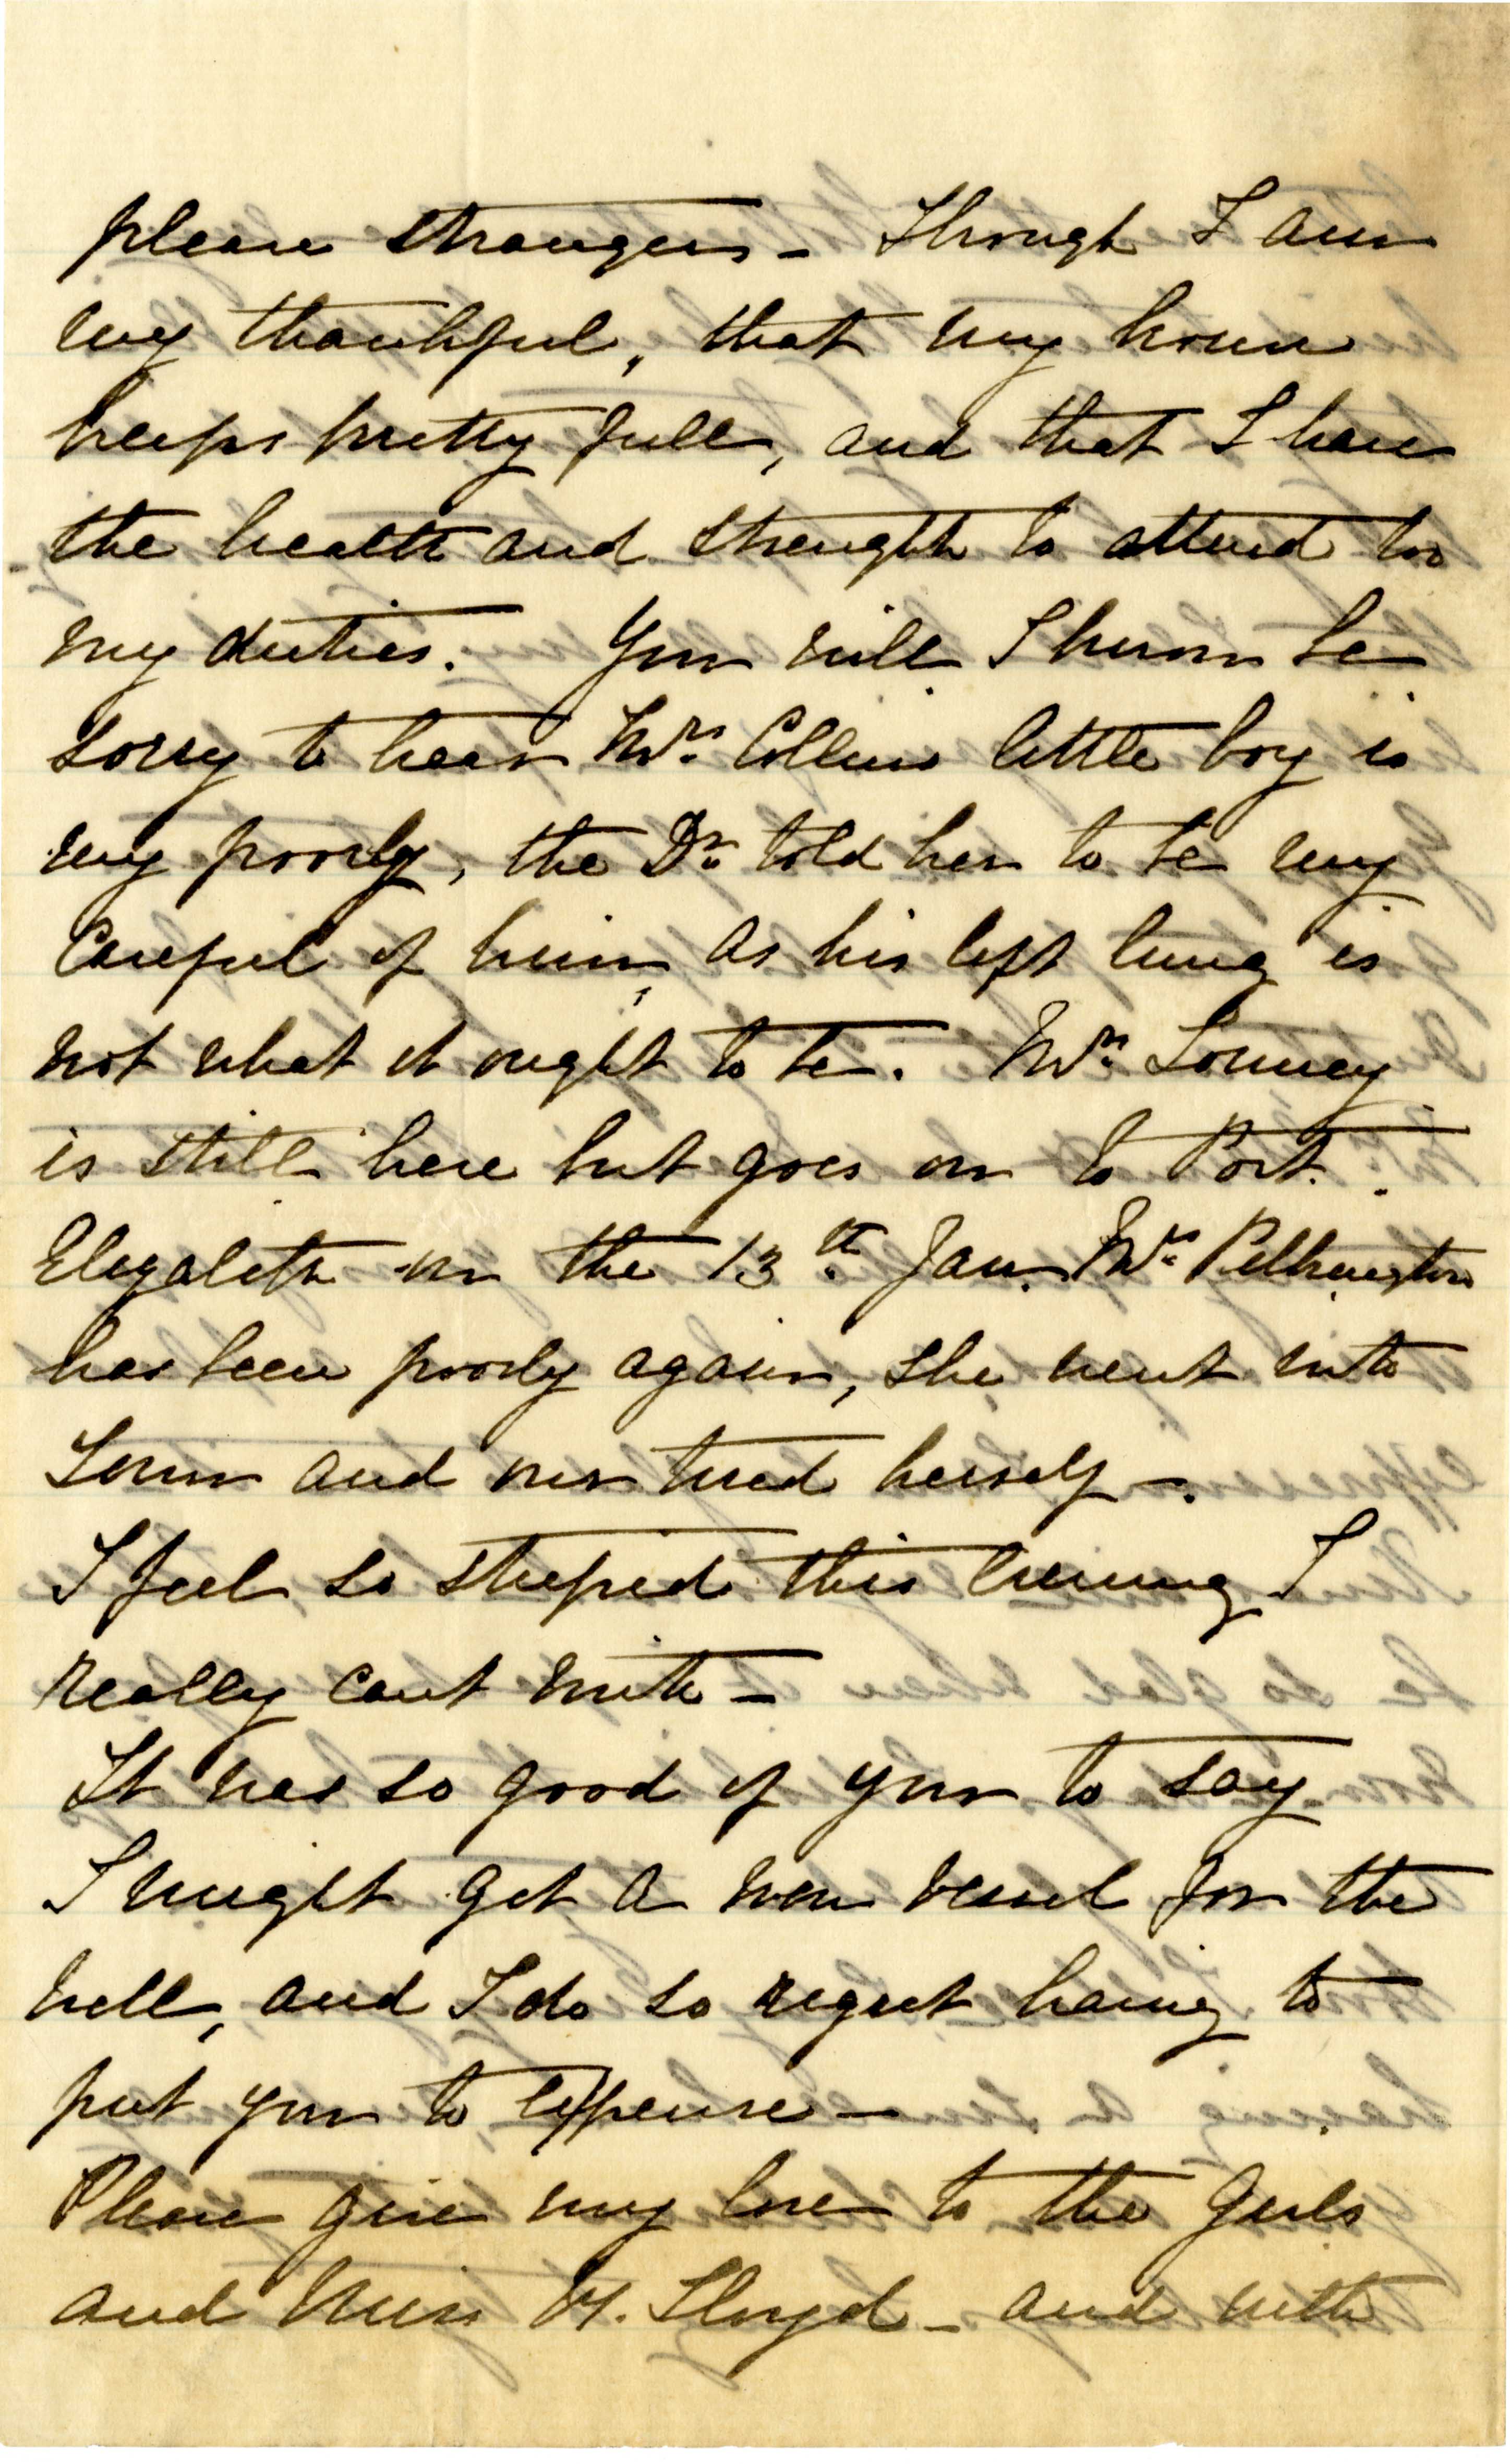 please strangers - Though I am
very thankful, that my house
keeps pretty full, and that I have
the health and strenght to attend too
my duties. You will I know be
sorry to hear Mrs. Collins little boy is
very poorly, the Dr. told her to be very
Careful of him, as his left lung is
not what it ought to be. Mrs.
is still here but goes on to Port.
Elizabeth on the 13th. Jan. Mrs.
has been poorly again, she went into
Town and over tired herself -.
I feel so stupid this evening I
really cant write -
It was so good of you to say
I might get a new vessel for the
well, and I do so regret having to
put you to expense -
Please give my love to the Girls
and Miss Lloyd - and with